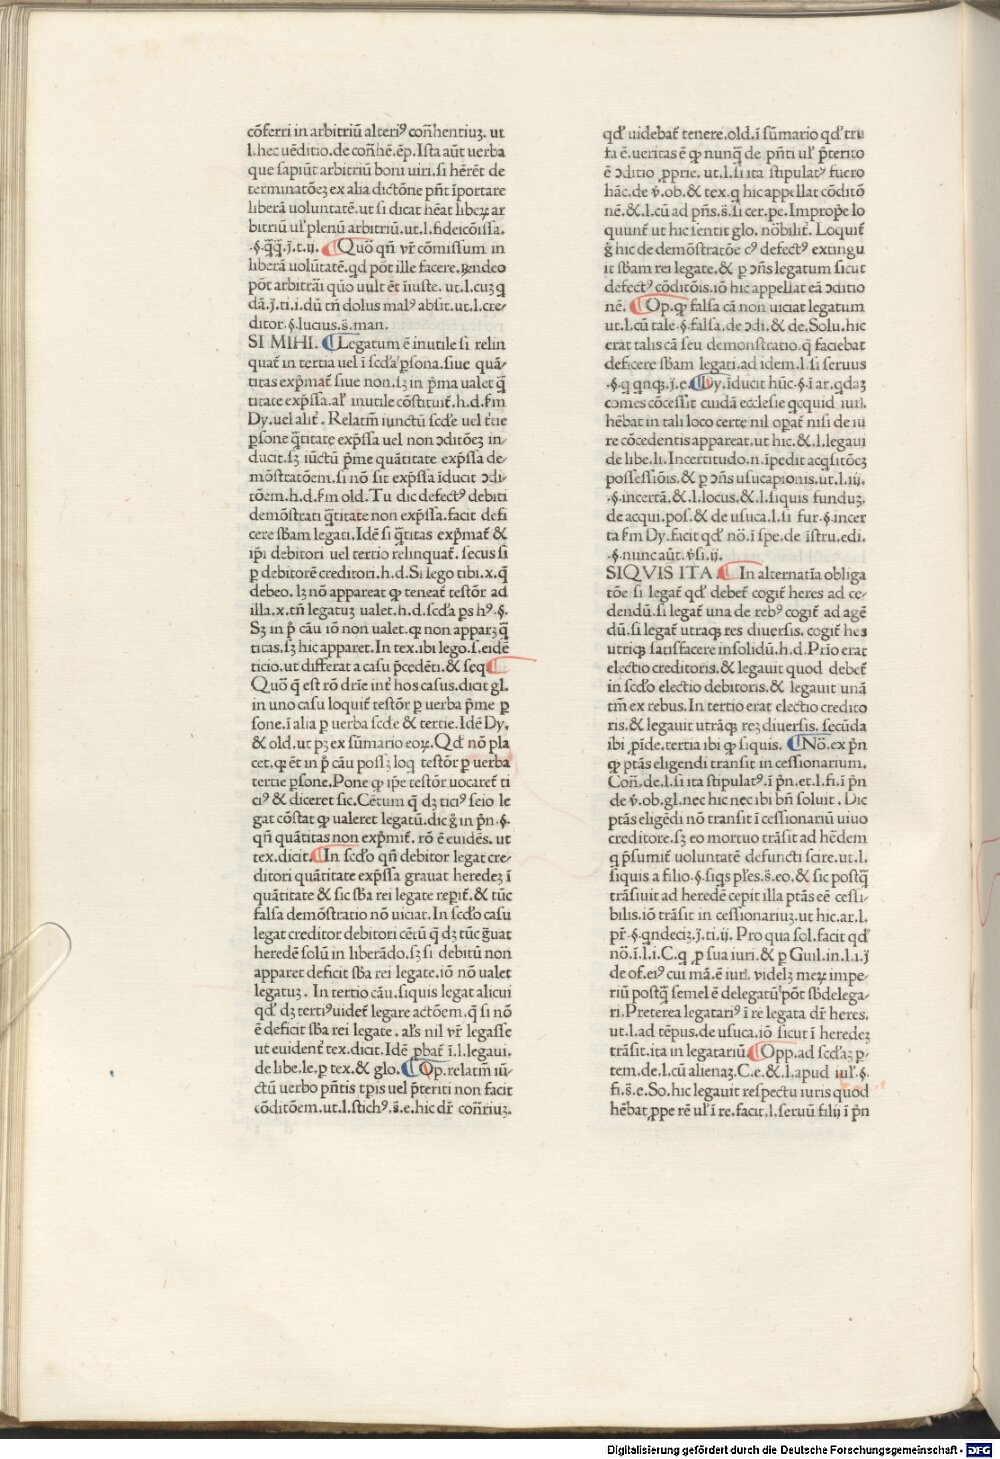 cōferri in arbitriū alteri⁹ coñhentiuʒ. ut
l.hec uēditio.de coñhē.ēp. Ista aūt uerba
que sapiūt arbitriū boni uiri.si hērēt de
terminatōeʒ ex alia dictōne pñt īportare
liberā uoluntatē.ut si dicat hēat libeꝝ ar
bitriū ul̉ plenū arbitriū.ut.l.fideicōissa.
.§.q̄q̄.j̄.t.ij. ¶Quō qñ vr̄ cōmissum in
liberā uolūtatē.qd pōt ille facere.ꝶndeo
pōt arbitrāi quō uult ēt īiuste. ut.l.cuʒ q
dā.j̄.ti.i.dū tñ dolus mal⁹ absit.ut.l.cre/
ditor.§.lucius.s̄.man.
SI MIHI. ¶Legatum ē inutile si relin
quat̄ in tertia uel ī scd̄a ꝑsona.siue quā/
titas exp̄mat̄ siue non.sʒ in p̄ma ualet q̄
titate exp̄ssa.al̉ inutile cōstituit̄.h.d.s̄m
Dy.uel alit̄. Relatīm iunctū scd̄e uel t̄tie
ꝑsone q̄titate exp̄ssa uel non ↄditōeʒ in/
ducit.sʒ iūctū p̄me quātitate exp̄ssa de/
mōstratōem.si nō sit exp̄ssa īducit ↄdi/
tōem.h.d.s̄m old. Tu dic defect⁹ debiti
demōstrati q̄titate non exp̄ssa.facit defi
cere sb̄am legati. Idē si q̄titas exp̄mat̄ &
ip̄i debitori uel tertio relinquat̄. secus si
ꝑ debitorē creditori.h.d. Si lego tibi.x.q̄
debeo. lʒ nō appareat ꝙ teneat̄ test̄or ad
illa.x.tñ legatuʒ ualet.h.d.scd̄a ꝑs h⁹.§.
Sʒ in p̄ cāu iō non ualet.ꝙ non apparʒ q̄
titas.sʒ hic apparet. In tex.ibi lego.s.eidē
ticio.ut differat a casu p̄cedēti.& seq ¶
Quō q̄ est rō dr̄ie int̄ hos casus.dicit gl.
in uno casu loquit̄ test̄or ꝑ uerba p̄me ꝑ
sone.ī alia ꝑ uerba scd̄e & tertie. Idē Dy.
& old.ut pʒ ex sūmario eoꝝ. Qd̉ nō pla
cet.ꝙ ēt in p̄ cāu possʒ loq̄ test̄or ꝑ uerba
tertie ꝑsone. Pone ꝙ ip̄e test̄or uocaret̄ ti
ci⁹ & diceret sic. Cētum q̄ dʒ tici⁹ seio le
gat cōstat ꝙ ualeret legatū.dic g̉ in p̄n.§.
qñ quātitas non exp̄mit̄. rō ē euidēs. ut
tex.dicit. ¶In scd̉o qñ debitor legat cre/
ditori quātitate exp̄ssa grauat heredeʒ ī
quātitate & sic sb̄a rei legate reꝑit̄.& tūc
falsa demōstratio nō uiciat. In scd̉o casu
legat creditor debitori cētū q̄ dʒ tūc g̉uat
heredē solū in liberādo.sʒ si debitū non
apparet deficit sb̄a rei legate.iō nō ualet
legatuʒ. In tertio cāu.siquis legat alicui
qd̉ dʒ terti⁹ uidet̄ legare actōem.q̄ si nō
ē deficit sb̄a rei legate. al̉s nil vr̄ legasse
ut euident̄ tex.dicit. Idē ꝓbat̄ ī.l.legaui.
de libe.le.ꝑ tex.& glo. ¶Op.relatīm iū/
ctū uerbo pñtis tꝑis uel p̄teriti non facit
cōditōem.ut.l.stich⁹.s̄.e.hic dr̄ coñriuʒ.
qd̉ uidebat̄ tenere.old.ī sūmario qd̉ tru
fa ē.ueritas ē ꝙ nunq̄ de pñti ul̉ p̄terito
ē ↄditio ꝓprie. ut.l.si ita stipulat⁹ fuero
hāc.de v̄.ob.& tex.q hic appellat cōditō
nē.&.l.cū ad pñs.s̄.si cer.pe. Improp̄e lo
quunt̄ ut hic sentit glo. nōbilit̄. Loquit̄
g̉ hic de demōstratōe c⁹ defect⁹ extingu
it sb̄am rei legate.& ꝑ ↄñs legatum sicut
defect⁹ cōditōis.iō hic appellat eā ↄditio
nē. ¶Op.ꝙ falsa cā non uiciat legatum
ut.l.cū tale.§.falsa.de ↄdi.& de. Solu.hic
erat talis cā seu demonstratio.q̄ faciebat
deficere sb̄am legati.ad idem.l.si seruus
.§.q qnqʒ.j̄.e. ¶Dy.īducit hūc.§.ī ar.qdaʒ
comes cōcessit cuidā ecclesie qcquid iuri.
hēbat in tali loco certe nil oꝑat̄ nisi de iu
re cōcedentis appareat.ut hic.&.l.legaui
de libe.li. Incertitudo.n.īpedit acqsitōeʒ
possessiōis.& ꝑ ↄñs usucapionis.ut.l.iij.
.§.incertā.&.l.locus.&.l.siquis funduʒ.
de acqui.pos.& de usuca.l.si fur.§.incer
ta s̄m Dy.facit qd̉ nō.ī spe.de īstru.edi.
.§.nunc aūt.v̄si.ij.
SIQVIS ITA ¶In alternatīa obliga
tōe si legat̄ qd̉ debet̄ cogit̄ heres ad ce/
dendū.si legat̄ una de reb⁹ cogit̄ ad agē
dū.si legat̄ utraqʒ res diuersis. cogit̄ hes
utriqʒ satisfacere insolidū.h.d. Prio erat
electio creditoris.& legauit quod debet̄
in scd̉o electio debitoris.& legauit unā
tm̄ ex rebus. In tertio erat electio credito
ris.& legauit utrāqʒ reʒ diuersis. secūda
ibi ꝓīde.tertia ibi ꝙ siquis. ¶Nō.ex p̄n
ꝙ ptās eligendi transit in cessionarium.
Coñ.de.l.si ita stipulat⁹.ī p̄n.et.l.fi.ī p̄n
de v̄.ob.gl.nec hic nec ibi bñ soluit. Dic
ptās eligēdi nō transit ī cessionariū uiuo
creditore.sʒ eo mortuo trāsit ad hēdem
q p̄sumit̄ uoluntatē defuncti scire.ut.l.
siquis a filio.§.siqs ples.s̄.eo.& sic postq̄
trāsiuit ad heredē cepit illa ptās eē cessi/
bilis.iō trāsit in cessionariuʒ.ut hic.ar.l.
pr̄.§.qndeciʒ.j̄.ti.ij. Pro qua sol.facit qd̉
nō.ī.l.i.C.q ꝓ sua iuri.& ꝑ Guil.in.l.i.j̄
de of.ei⁹ cui mā.ē iuri. videlʒ meꝝ impe/
riū postq̄ semel ē delegatū pōt sb̄delega/
ri. Preterea legatari⁹ ī re legata dr̄ heres.
ut.l.ad tēpus.de usuca.iō sicut ī heredeʒ
trāsit.ita in legatariū. ¶Opp.ad scd̄aʒ ꝑ/
tem.de.l.cū alienaʒ.C.e.&.l.apud iul̉.§.
fi.s̄.e. So.hic legauit respectu iuris quod
hēbat ꝓppe rē ul̉ ī re.facit.l.seruū filij ī p̄n
Digitalisierung gefördert durch die Deutsche Forschungsgemeinschaft - DFG